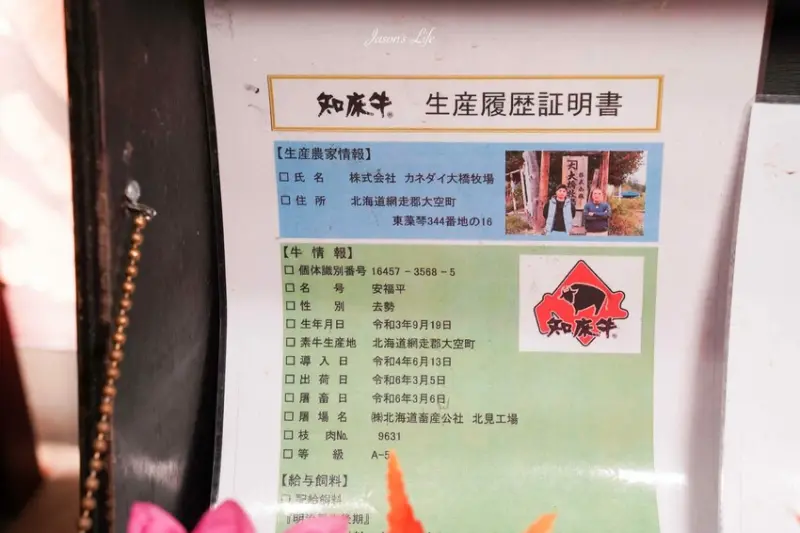 Jason's Life
知床牛® 生産履歴証明書
【生産農家情報】
□ 氏 名 株式会社 カネダイ大橋牧場
□ 住 所 北海道網走郡大空町
東藻琴344番地の16
【牛 情 報】
□ 個体識別番号 16457-3568-5
□ 名 号 安福平
□ 性 別 去勢
□ 生年月日 令和3年9月19日
□ 素牛生産地 北海道網走郡大空町
□ 導 入 日 令和4年6月13日
□ 出 荷 日 令和6年3月5日
□ 屠 畜 日 令和6年3月6日
□ 屠 場 名 ㈱北海道畜産公社 北見工場
□ 枝 肉No. 9631
□ 等 級 A-5
知床牛®
【給与飼料】
□ 配給飼料